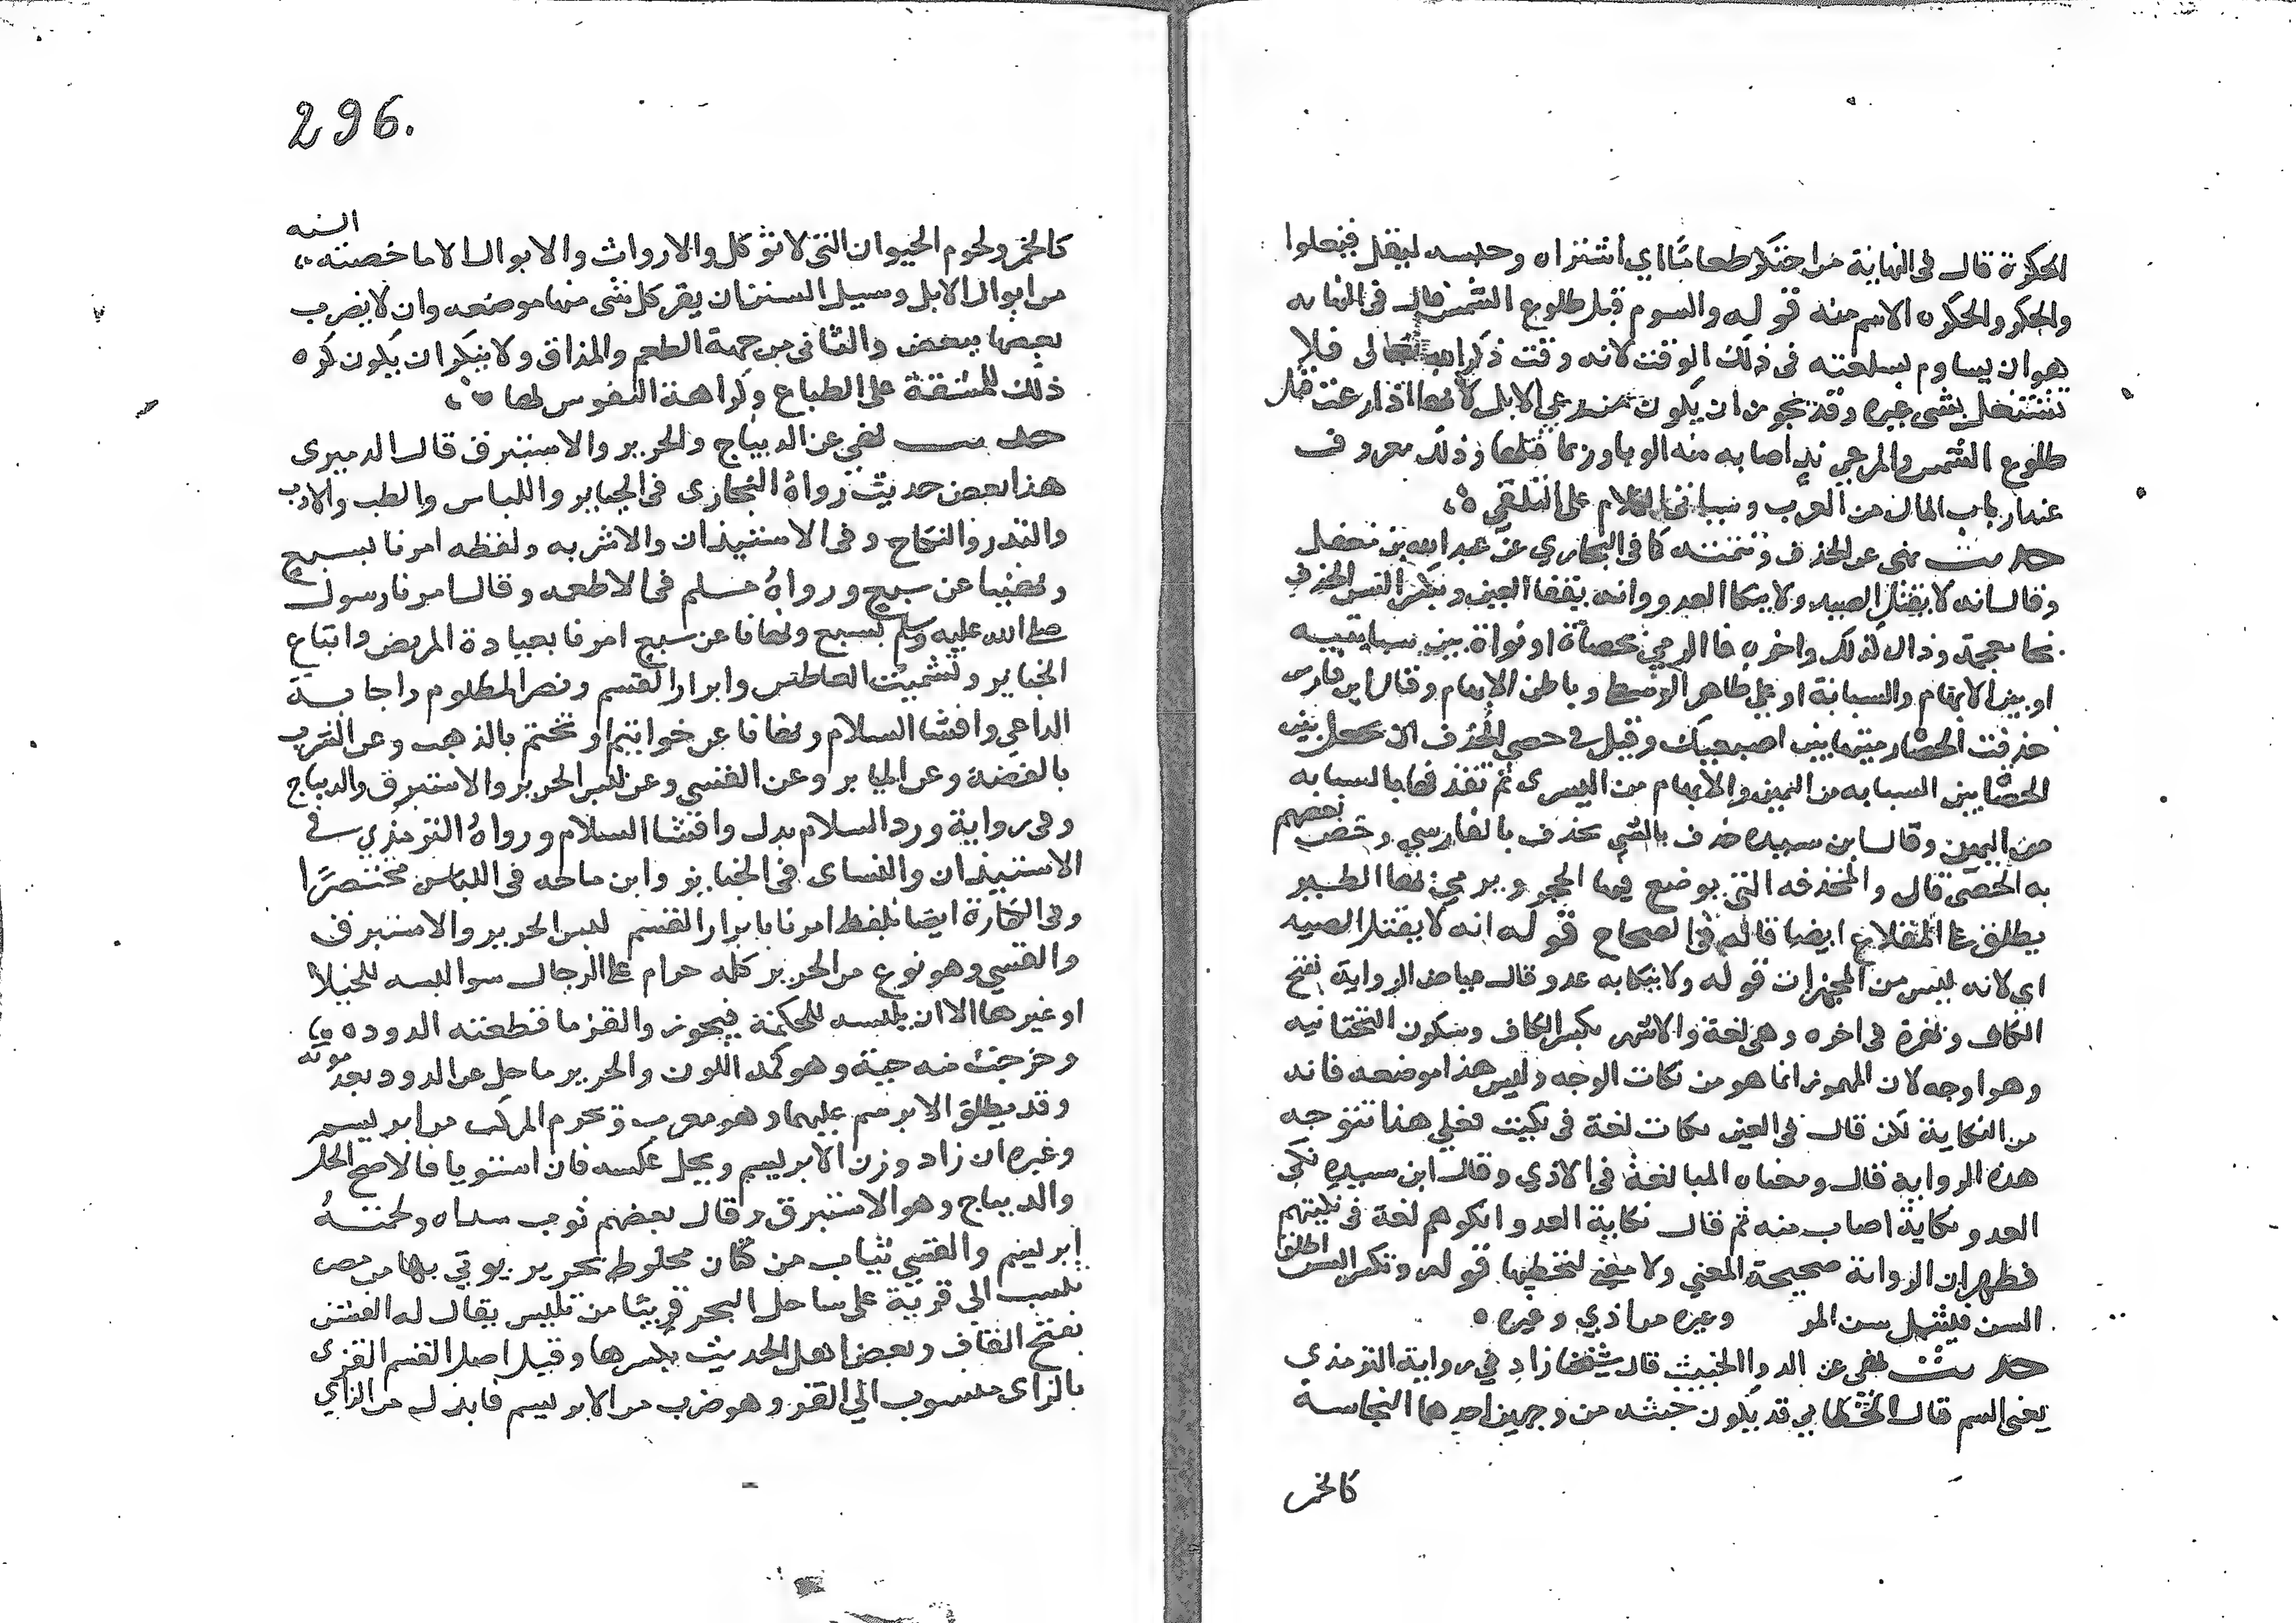 الحكرة قال في النهاية من احتكر طعاما اي اشتراه وحبسه ليقل فيغلوا
والحكر والحكره الاسم منه قوله والسوم قبل طلوع الشمس قال في النهايه
هو ان يساوم بسلعته في ذلك الوقت لانه وقت ذكر الله تعالى فلا
تشتغل بشي غيره وقد يجوز ان يكون من رعي الابل لانها اذا رعت قبل
طلوع الشمس والمرعي ند اصابه منه الوبا وربما قتلها وذلك معروف
عند ارباب المال من العرب وسياتي الكلام على التلقي
حديث نهى عن الخذف وتتمته كما في البخاري عن عبد الله بن مغفل
وقال انه لا يقتل الصيد ولا ينكا العدو وانه يفقا العين ويكسر السن الخذف
بخا معجمة وذال كذلك واخره فا الرمي بحصاة او نواة بين سبابتيه
او بين الابهام والسبابة او على ظاهر الوسط وباطن الابهام وقال ابن فارس
خذفت الحصا رميتها بين اصبعيك وقيل في حصى الخذف ان يجعل
الحصا بين السبابه من اليمين والابهام من اليسرى ثم تقذفها بالسبابه
من اليمين وقال ابن سيده خذف بالشي يخذف بالفارسي وخص بعضهم
به الحصى قال والمخذفه التي يوضع فيها الحجر ويرمي بها الطير
يطلق على المقلاع ايضا قاله في الصحاح قوله انه لا يقتل الصيد
اي لانه ليس من المجهزات قوله ولا ينكا به عدو قال عياض الرواية بفتح
الكاف وهمزة في اخره وهي لغة والاشهر بكسر الكاف وسكون التحتانيه
وهو اوجه لان المهموز انما هو من نكات الوجه وليس هذا موضعه فانه
من النكاية لكن قال في العين نكات لغة في نكيت فعلى هذا تتوجه
هذه الرواية قال ومعناه المبالغة في الاذى وقال ابن سيده نكى
العدو نكاية اصاب منه ثم قال نكاية العدو انكوهم لغة في نكيتهم
فظهر ان الرواية صحيحة المعنى ولا معنى لتخطيها قوله وتكسر السن اطلق
السن فيشمل سن المر وغيره من اذي وغيره
حديث نهى عن الدوا الخبيث قال شيخنا زاد في رواية الترمذي
يعني السم قال الخطابي قد يكون خبثه من وجهين احدهما النجاسة
كالخمر
296.
كالخمر ولحوم الحيوان التي لا تؤكل والارواث والابوال الا ما خصته السنه
من ابوال الابل وسبيل السنن ان يقر كل شي منها موضعه وان لا يضرب
بعضها ببعض والثاني من جهة الطعم والمذاق ولا ينكر ان يكون كره
ذلك للمشقة على الطباع وكراهة النفوس لها
حديث نهي عن الديباج والحرير والاستبرق قال الدميرى
هذا بعض حديث رواه البخارى في الجنايز واللباس والطب والادب
والنذر والنكاح وفي الاستيذان والاشربه ولفظه امرنا بسبع
ونهينا عن سبع ورواه مسلم في الاطعمه وقال امرنا رسول
صلى الله عليه وسلم بسبع ونهانا عن سبع امرنا بعيادة المريض واتباع
الجنايز وتشميت العاطس وابرار القسم ونصر المظلوم واجابة
الداعي وافشا السلام ونهانا عن خواتيم او تختم بالذهب وعن الشرب
بالفضة وعن المياثر وعن القسي وعن لبس الحرير والاستبرق والديباج
وفي رواية ورد السلام بدل وافشا السلام ورواه الترمذي في
الاستيذان والنساى في الجنايز وابن ماجه في اللباس مختصرا
وفي الكفارة ايضا بلفظ امرنا بابرار القسم لبس الحرير والاستبرق
والقسي وهو نوع من الحرير كله حرام على الرجال سوا لبسه للخيلا
او غيرها الا ان يلبسه للحكة فيجوز والقز ما قطعته الدوده
وخرجت منه حية وهو كمد اللون والحرير ما حل عن الدود بعد موته
وقد يطلق الابرسم عليهما وهو معرب ويحرم المركب من ابريسم
وغيره ان زاد وزن الابريسم ويحل عكسه فان استويا فالاصح الحل
والديباج وهو الاستبرق وقال بعضهم ثوب سداه ولحمته
ابريسم والقسي ثياب من كتان مخلوط بحرير يوتي بها من مصر
تنسب الى قرية على ساحل البحر قريبا من تنيس يقال له القس
بفتح القاف وبعض اهل الحديث بكسرها وقيل اصل القسم القزى
بالزاى منسوب الي القز وهو ضرب من الابريسم فابدل من الزاي